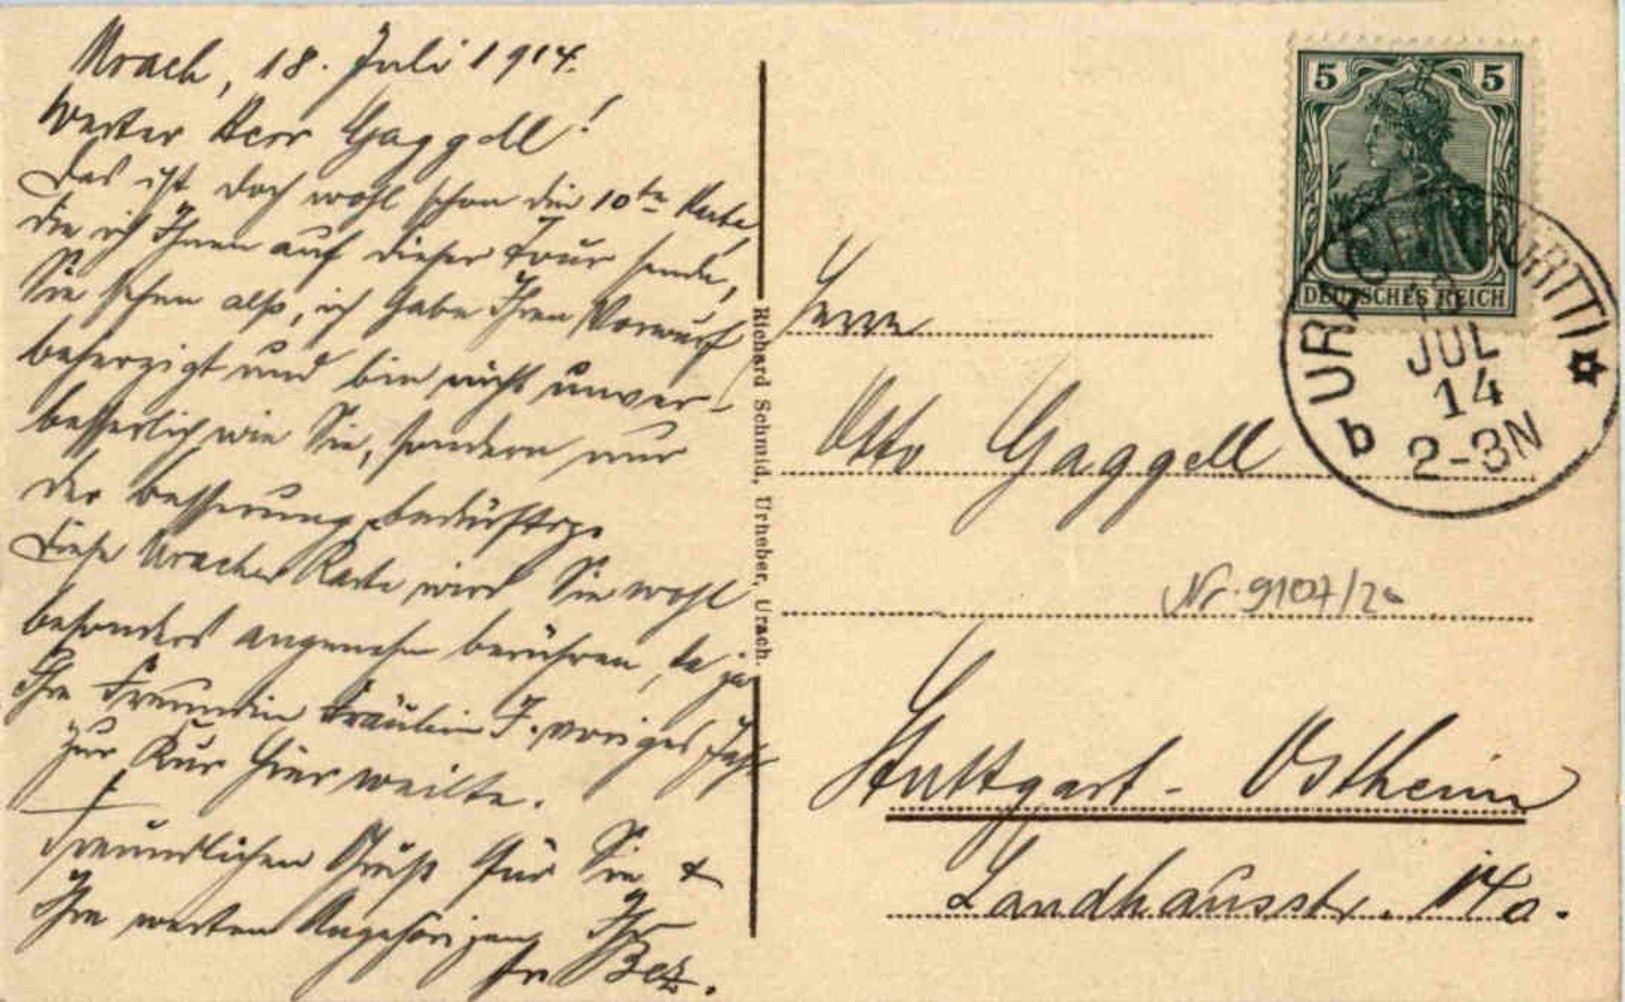 Urach, 18. Juli 1914.
Werter Herr Gaggell!
Das ist doch wohl schon die 10te Karte,
die ich Ihnen auf dieser Tour sende,
Sie sehen also, ich habe Ihren Vorwurf
beherzigt und bin nicht unver-
besserlich wie Sie, sondern nur
der Besserung bedürftig.
Diese Uracher Karte wird Sie wohl
besonders angenehm berühren, da ja
Ihre Freundin Fräulein F. voriges Jahr
zur Kur hier weilte.
Freundlichen Gruß für Sie &
Ihre werten Angehörigen Ihr
Bez.
Richard Schmid, Urheber, Urach.
5 5
DEUTSCHES REICH
URACH
JUL
14
2-3N
b
Herrn
Otto Gaggell
Nr. 9107/20
Stuttgart - Ostheim
Landhausstr.